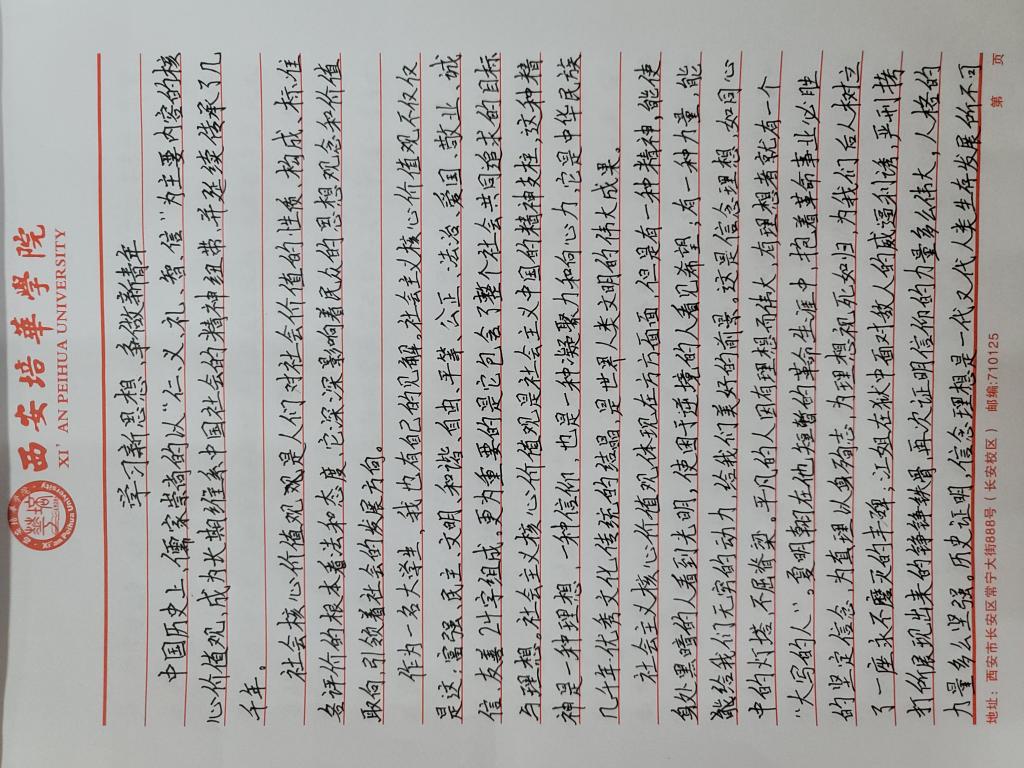 西安培華学院
XI' AN PEIHUA UNIVERSITY
学习新思想，争做新青年
中国历史上，儒家崇尚的以“仁、义、礼、智、信”为主要内容的核
心价值观，成为长期维系中国社会的精神纽带，并延续传承了几
千年。
社会核心价值观是人们对社会价值的性质、构成、标准
各评价的根本看法和态度，它深深影响着民众的思想观念和价值
取向，引领着社会的发展方向。
作为一名大学生，我也有自己的见解。社会主义核心价值观不仅仅
是这：富强、民主、文明、和谐、自由、平等、公正、法治、爱国、敬业、诚
信、友善24字组成。更为重要的是它包含了整个社会共同追求的目标
与理想。社会主义核心价值观是社会主义中国的精神支柱，这种精
神是一种理想，一种信仰，也是一种凝聚力和向心力，它是中华民族
几千年优秀文化传统的结晶，是世界人类文明的伟大成果。
社会主义核心价值观体现在方方面面，但是有一种精神，能使
身处黑暗的人看到光明，使困于逆境的人看见希望；有一种力量，能
能给我们无穷的动力，给我们美好的前景。这是信念理想，如同心
中的灯塔不屈脊梁。平凡的人因有理想而伟大，有理想者就有一个
“大写的人”。夏明翰在他短暂的革命生涯中，抱着革命事业必胜
的坚定信念，为真理以身殉志，为理想视死如归，为我们后人树立
了一座永不磨灭的丰碑；江姐在狱中面对敌人的威逼利诱，严刑拷
打所展现出来的铮铮铁骨，再次证明信仰的力量多么伟大，人格的
力量多么坚强。历史证明，信念理想是一代又一代人类生存发展所不可
地址：西安市长安区常宁大街888号（长安校区） 邮编:710125
第 页